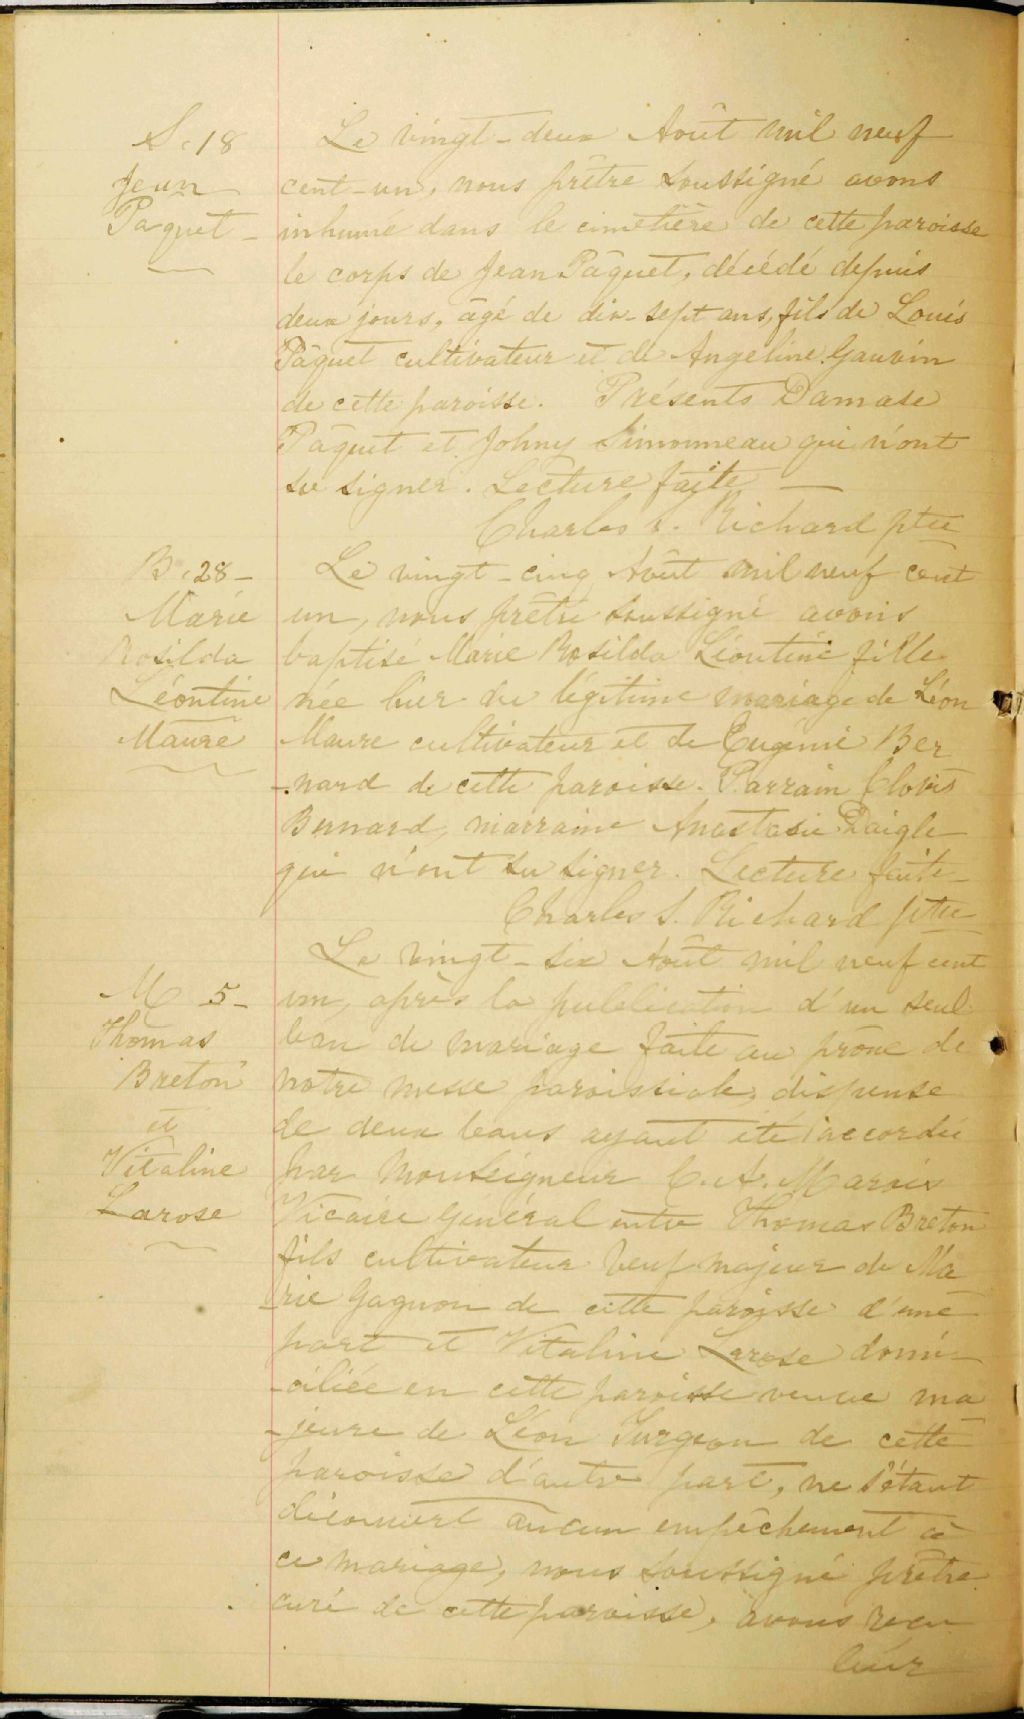 S. 18
Jean
Paquet -
Le vingt-deux Août mil neuf
cent-un, nous prêtre soussigné avons
inhumé dans le cimetière de cette paroisse
le corps de Jean Pâquet, décédé depuis
deux jours, âgé de dix-sept ans, fils de Louis
Pâquet cultivateur et de Angeline Gauvin
de cette paroisse. Présents Damase
Pâquet et Johny Simonneau qui n'ont
su signer. Lecture faite
Charles S. Richard ptre
B. 28 -
Marie
Rosilda
Léontine
Maure
Le vingt-cinq Août mil neuf cent
un, nous prêtre soussigné avons
baptisé Marie Rosilda Léontine fille
née hier du légitime mariage de Léon
Maure cultivateur et de Eugénie Ber
-nard de cette paroisse. Parrain Clovis
Bernard, marraine Anastasie Daigle
qui n'ont su signer. Lecture faite -
Charles S. Richard ptre
M 5 -
Thomas
Breton
et
Vitaline
Larose
Le vingt-six Août mil neuf cent
un, après la publication d'un seul
ban de mariage faite au prône de
notre messe paroissiale, dispense
de deux bans ayant été accordée
par Monseigneur C. A. Marois
Vicaire Général entre Thomas Breton
fils cultivateur veuf majeur de Ma
-rie Gagnon de cette paroisse d'une
part et Vitaline Larose domi-
-ciliée en cette paroisse veuve ma
-jeure de Léon Turgeon de cette
paroisse d'autre part, ne s'étant
découvert aucun empêchement à
ce mariage, nous soussigné prêtre
curé de cette paroisse, avons reçu
leur